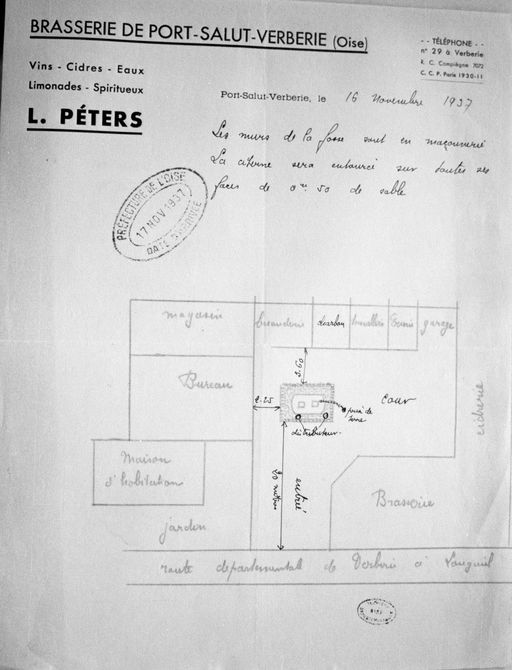 BRASSERIE DE PORT-SALUT-VERBERIE (Oise)
- - TÉLÉPHONE - -
n° 29 à Verberie
R. C. Compiègne 7072
C. C. P. Paris 1930-11
Vins - Cidres - Eaux
Limonades - Spiritueux
L. PÉTERS
Port-Salut-Verberie, le 16 Novembre 1937
Les murs de la fosse sont en maçonnerie
La citerne sera entourée sur toutes ses
faces de 0m 50 de sable
PRÉFECTURE DE L'OISE
17 NOV 1937
DATE D'ARRIVÉE
magasin
buanderie
charbon
écurie
garage
Bureau
3.60
2.25
cour
distributeur
cidrerie
Maison
d'habitation
20 mètres
entrée
Brasserie
jardin
route départementale de Verberie à Longueil